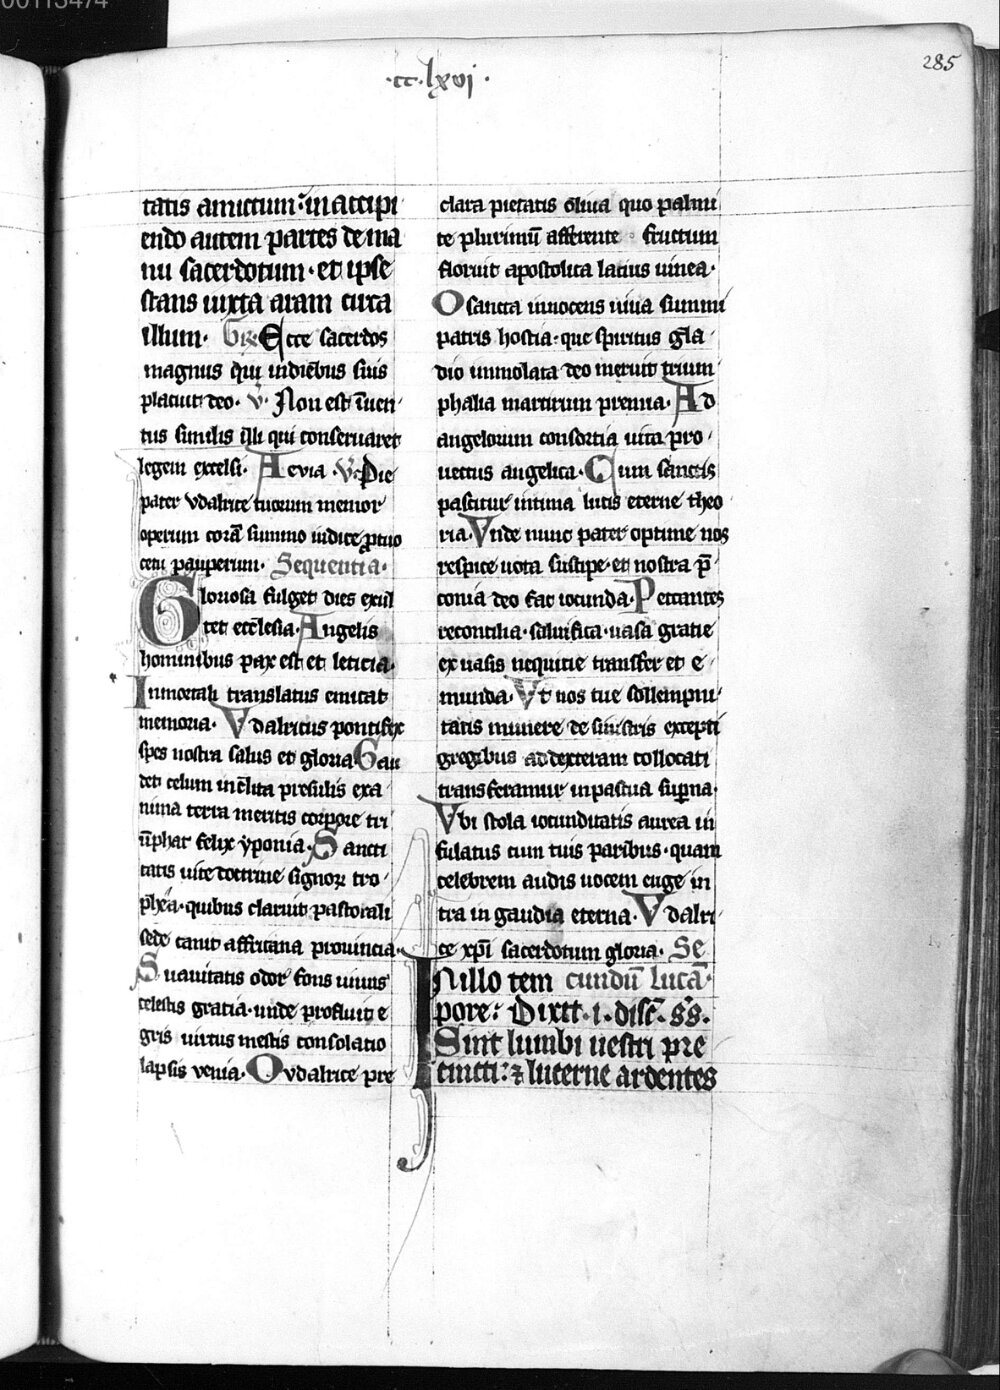 ·cc·lxvj·
285
tatis amictum: in accipi
endo autem partes de ma
nu sacerdotum· et ipse
stans iuxta aram circa
illum· Gr. Ecce sacerdos
magnus qui in dieb̄us suis
placuit deo· V̇· Non est īuen
tus similis illi qui conseruaret
legem excelsi· Aevia· V̇· Pie
pater vdalrice tuorum memor
operum corā summo iudice
pauperum· Sequentia·
Gloriosa fulget dies exul
tet ecc̄lesia· Angelis
hominibus pax est et leticia·
Inmortali translatus emicat
memoria· Vdalricus pontifex
spes nostra salus et gloria Gau
det celum inclita presulis exa
nima terra meritis corpore tri
ūphat felix yponia· Sancti
tatis uite doctrine signorꝝ tro
phea· quibus claruit pastorali
sede canit affricana prouincia·
Suauitatis odor fons uiuus
celestis gratia· unde profluit e
gris uirtus mestis consolatio
lapsis venia· O vdalrice pre
clara pietatis oliua quo palmi
te plurimū afferente fructum
floruit apostolica latius uinea·
O sancta innocens uiua summi
patris hostia· que spiritus gla
dio immolata deo meruit trium
phalia martirum premia· Ad
angelorum consortia uita pro
uectus angelica· Cum sanctis
pascitur intima lucis eterne theo
ria· Vnde nunc pater optime nos
respice uota suscipe· et nostra p̄
conia deo fac iocunda· Peccantes
reconcilia· saluifica· uasa gratie
ex uasis nequitie transfer et e
munda· Vt nos tue sollempni
tatis munere de sinistris excepti
gregibus ad dexteram collocati
transferamur in pascua sup̄na·
Vbi stola iocunditatis aurea in
fulatus cum tuis paribus· quam
celebrem audis uocem euge in
tra in gaudia eterna· Vdalri
ce xp̄i sacerdotum gloria· Se
INillo tem cundū lucā·
pore: Dixit· i· disc̄· s̄s̄·
Sint lumbi uestri pre
cincti: ⁊ lucerne ardentes